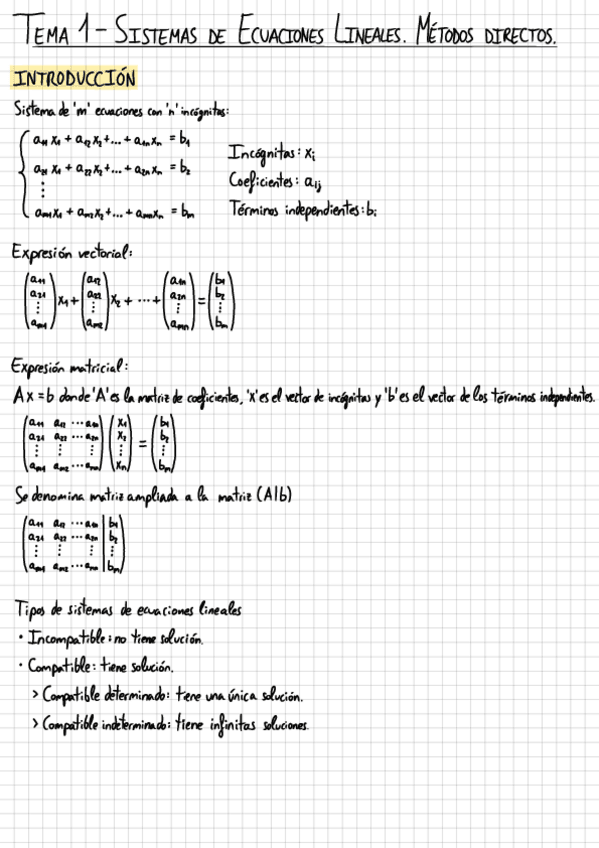 TEMA 1 - SISTEMAS DE ECUACIONES LINEALES. MÉTODOS DIRECTOS.
INTRODUCCIÓN
Sistema de 'm' ecuaciones con 'n' incógnitas:
a₁₁ x₁ + a₁₂ x₂ + ... + a₁ₙ xₙ = b₁
a₂₁ x₁ + a₂₂ x₂ + ... + a₂ₙ xₙ = b₂
⋮
aₘ₁ x₁ + aₘ₂ x₂ + ... + aₘₙ xₙ = bₘ
Incógnitas: xᵢ
Coeficientes: aᵢⱼ
Términos independientes: bᵢ
Expresión vectorial:
(a₁₁) (a₁₂) (a₁ₙ) (b₁)
(a₂₁) x₁ + (a₂₂) x₂ + ··· + (a₂ₙ) = (b₂)
(⋮) (⋮) (⋮) (⋮)
(aₘ₁) (aₘ₂) (aₘₙ) (bₘ)
Expresión matricial:
Ax = b donde 'A' es la matriz de coeficientes, 'x' es el vector de incógnitas y 'b' es el vector de los términos independientes.
(a₁₁ a₁₂ ··· a₁ₙ) (x₁) (b₁)
(a₂₁ a₂₂ ··· a₂ₙ) (x₂) = (b₂)
(⋮ ⋮ ⋮) (⋮) (⋮)
(aₘ₁ aₘ₂ ··· aₘₙ) (xₙ) (bₘ)
Se denomina matriz ampliada a la matriz (A|b)
(a₁₁ a₁₂ ··· a₁ₙ | b₁)
(a₂₁ a₂₂ ··· a₂ₙ | b₂)
(⋮ ⋮ ⋮ | ⋮)
(aₘ₁ aₘ₂ ··· aₘₙ | bₘ)
Tipos de sistemas de ecuaciones lineales
· Incompatible: no tiene solución.
· Compatible: tiene solución.
> Compatible determinado: tiene una única solución.
> Compatible indeterminado: tiene infinitas soluciones.